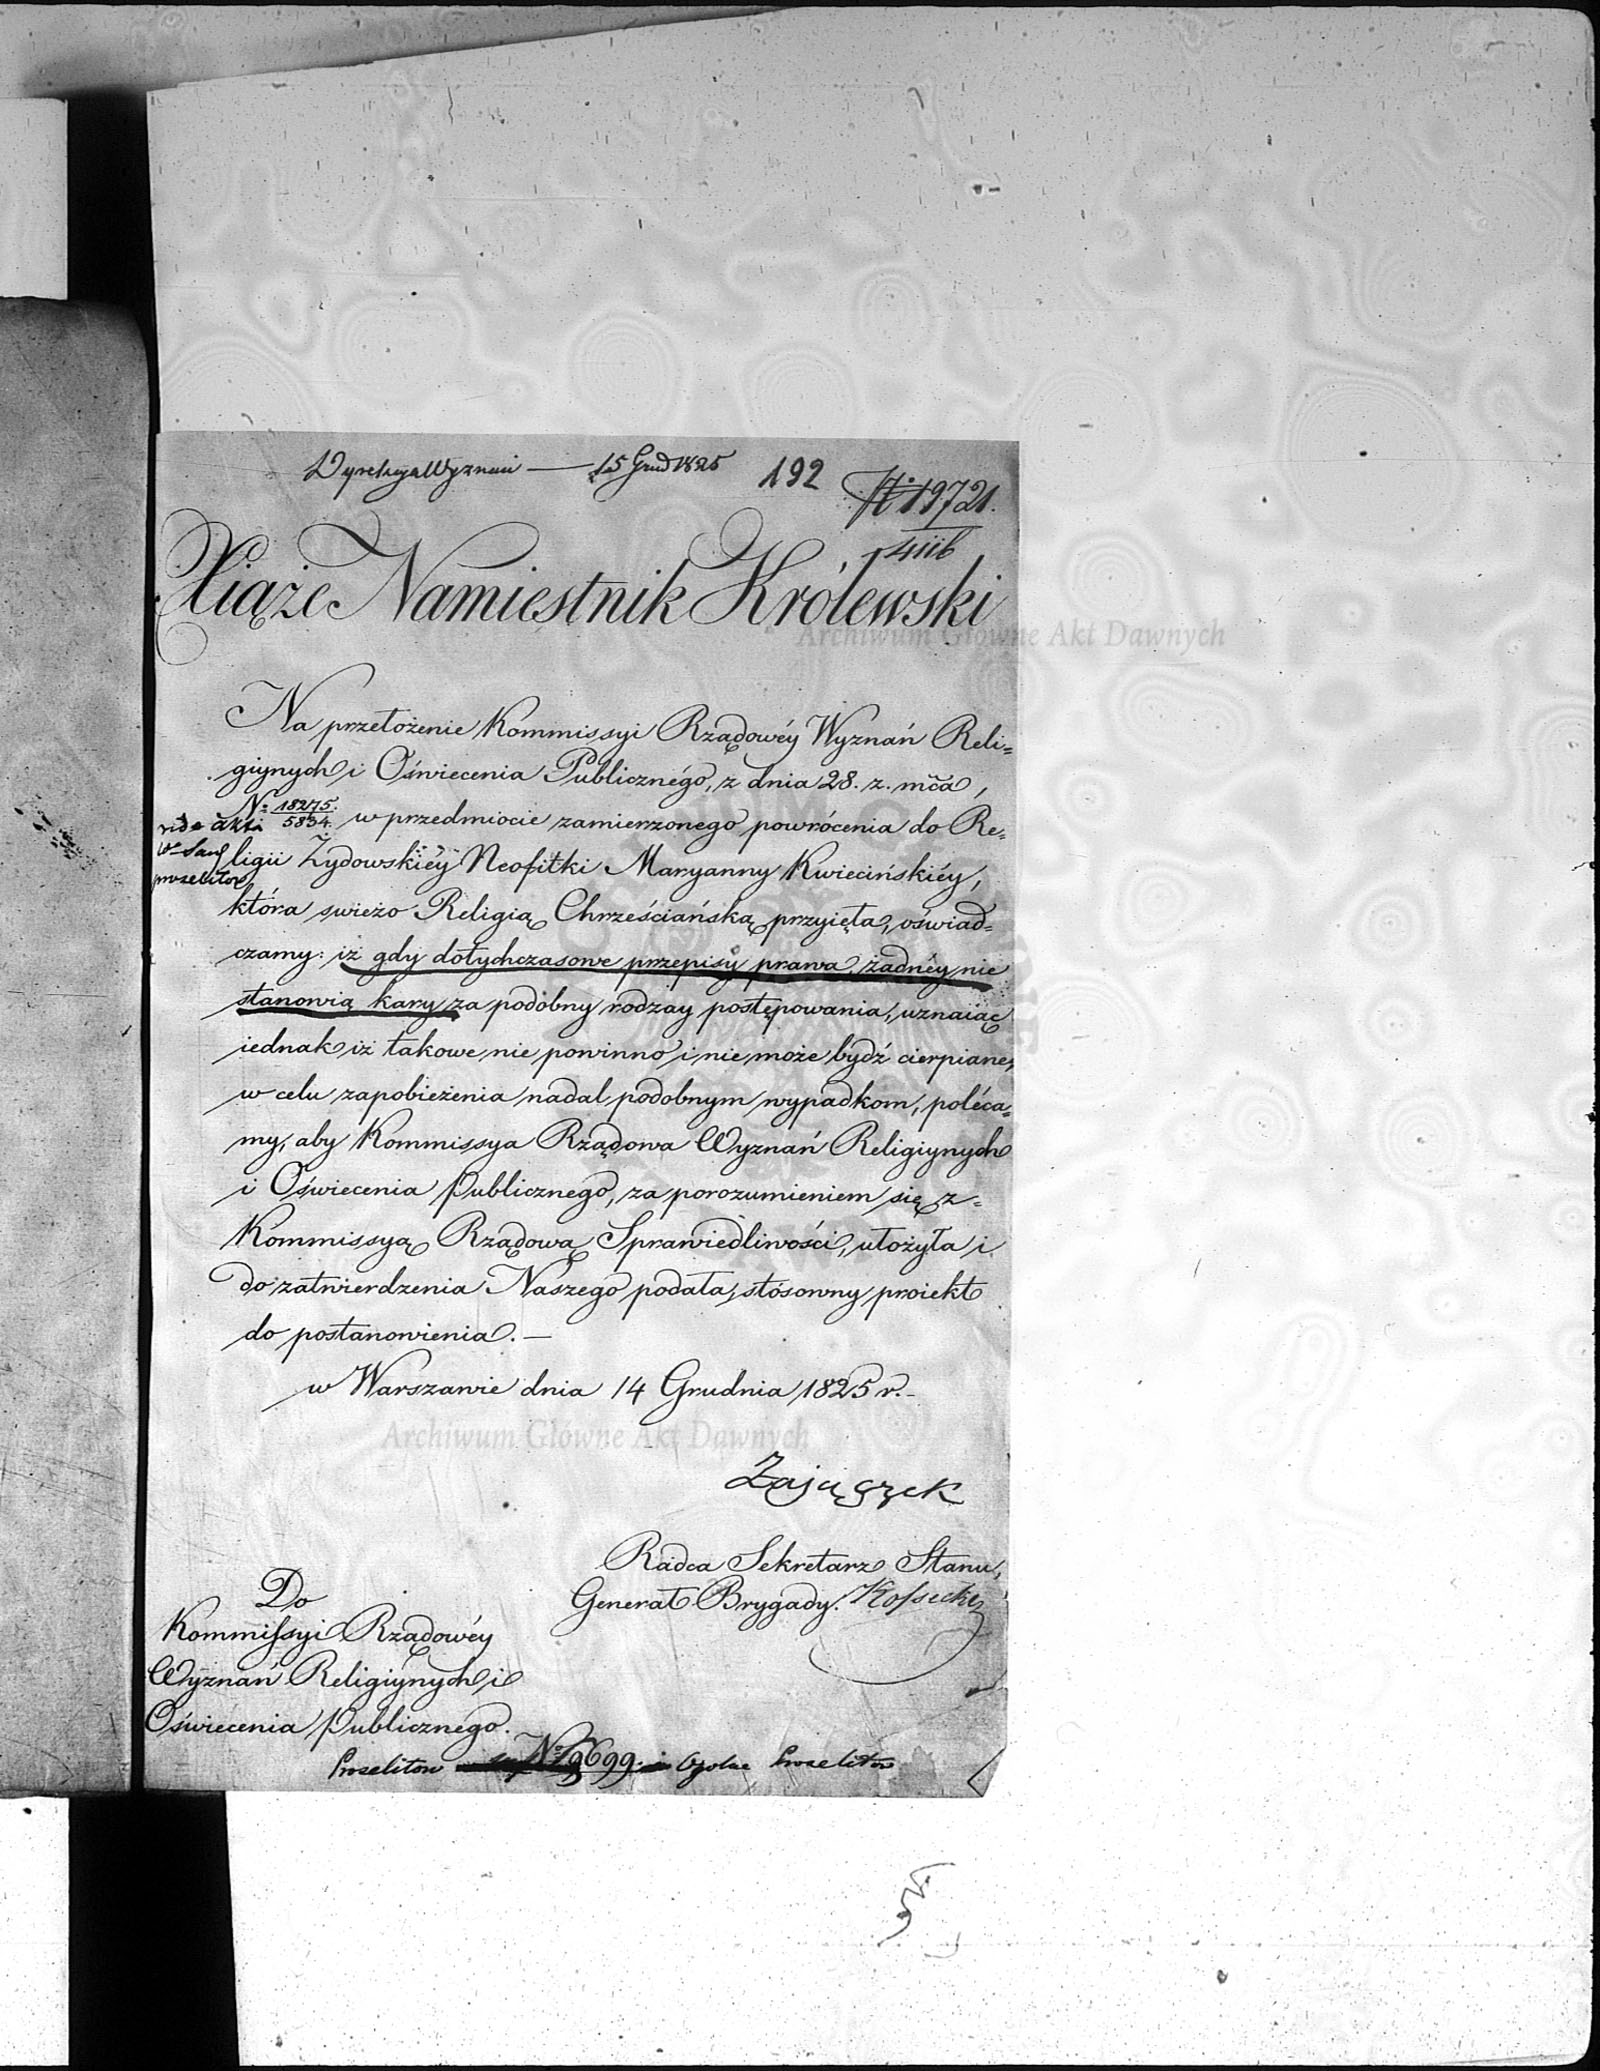 Dyrekcya Wyznań — 15 Grud 1825 192
N: 19721.
4116
Xiąże Namiestnik Królewski
Na przełożenie Kommissyi Rządowéy Wyznań Reli=
giynych i Oświecenia Publicznégo, z dnia 28. z. mca,
N: 18275./5834. w przedmiocie zamierzonego powrócenia do Re=
vide akta
ligii Żydowskiéy Neofitki Maryanny Kwiecińskiéy,
proselitow
która swieżo Religią Chrześciańską przyięła, oświad=
czamy: iż gdy dotychczasowe przepisy prawa żadnéy nie
stanowią kary za podobny rodzay postępowania, uznaiąc
iednak iż takowe nie powinno i nie może bydź cierpiane,
w celu zapobieżenia nadal podobnym wypadkom, poléca=
my, aby Kommissya Rządowa Wyznań Religiynych
i Oświecenia Publicznego, za porozumieniem się z=
Kommissyą Rządową Sprawiedliwości, ułożyła i
do zatwierdzenia Naszego podała, stósowny proiekt
do postanowienia. —
w Warszawie dnia 14 Grudnia 1825 r. -
Zajączek
Radca Sekretarz Stanu,
Generał Brygady. Kossecki
Do
Kommissyi Rządowéy
Wyznań Religiynych i
Oświecenia Publicznego.
Proselitow N: 19699. Ogolne Proselitow
Archiwum Główne Akt Dawnych
Archiwum Główne Akt Dawnych